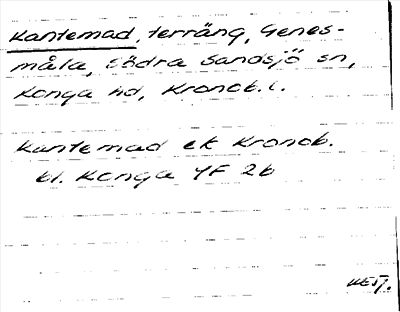 Kantemad, terräng, Genes-
måla, Södra Sandsjö sn,
Konga hd, Kronob. l.
Kantemad ek Kronob.
bl. Konga YF 2b